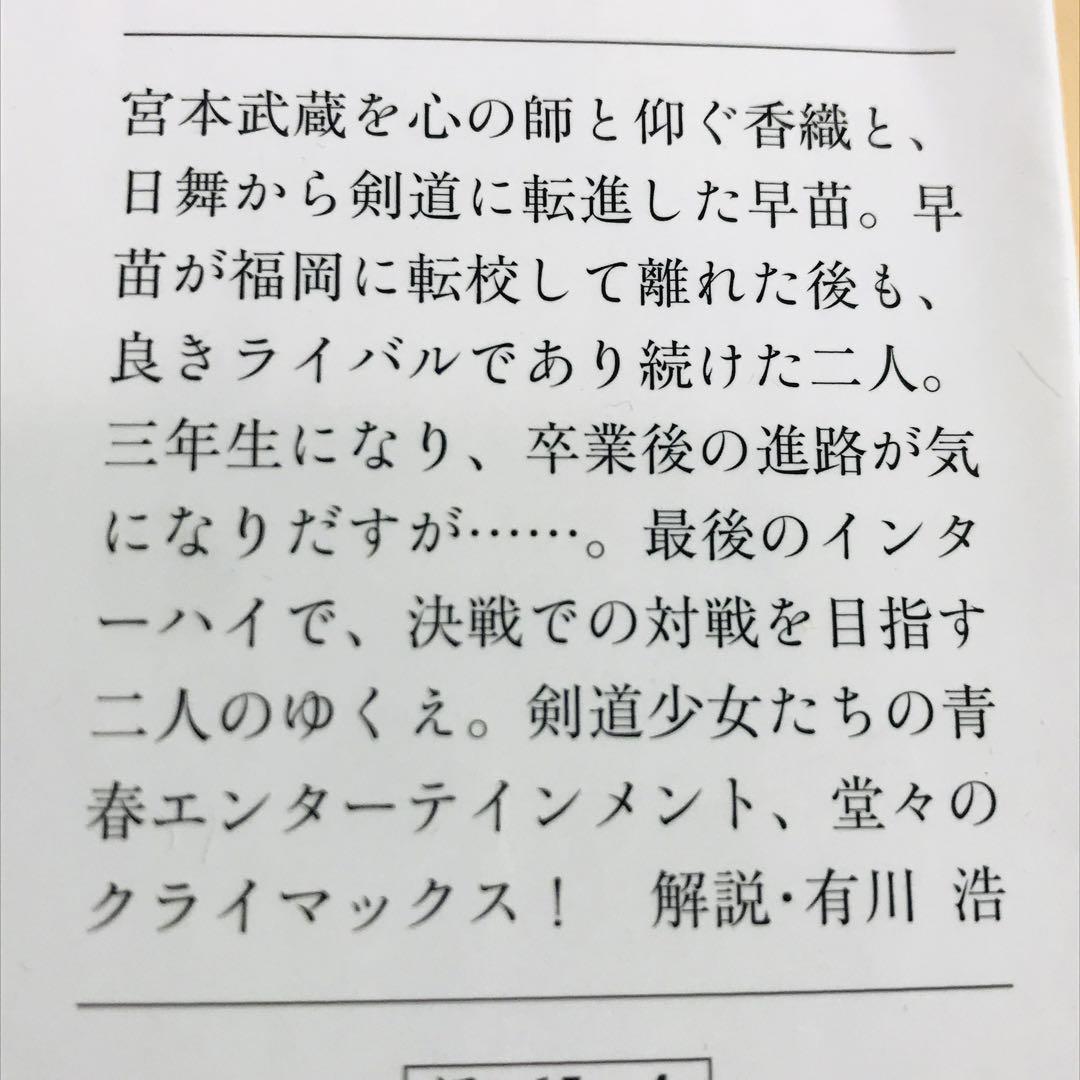 宮本武蔵を心の師と仰ぐ香織と、
日舞から剣道に転進した早苗。早
苗が福岡に転校して離れた後も、
良きライバルであり続けた二人。
三年生になり、卒業後の進路が気
になりだすが……。最後のインタ
ーハイで、決戦での対戦を目指す
二人のゆくえ。剣道少女たちの青
春エンターテインメント、堂々の
クライマックス！　解説・有川 浩